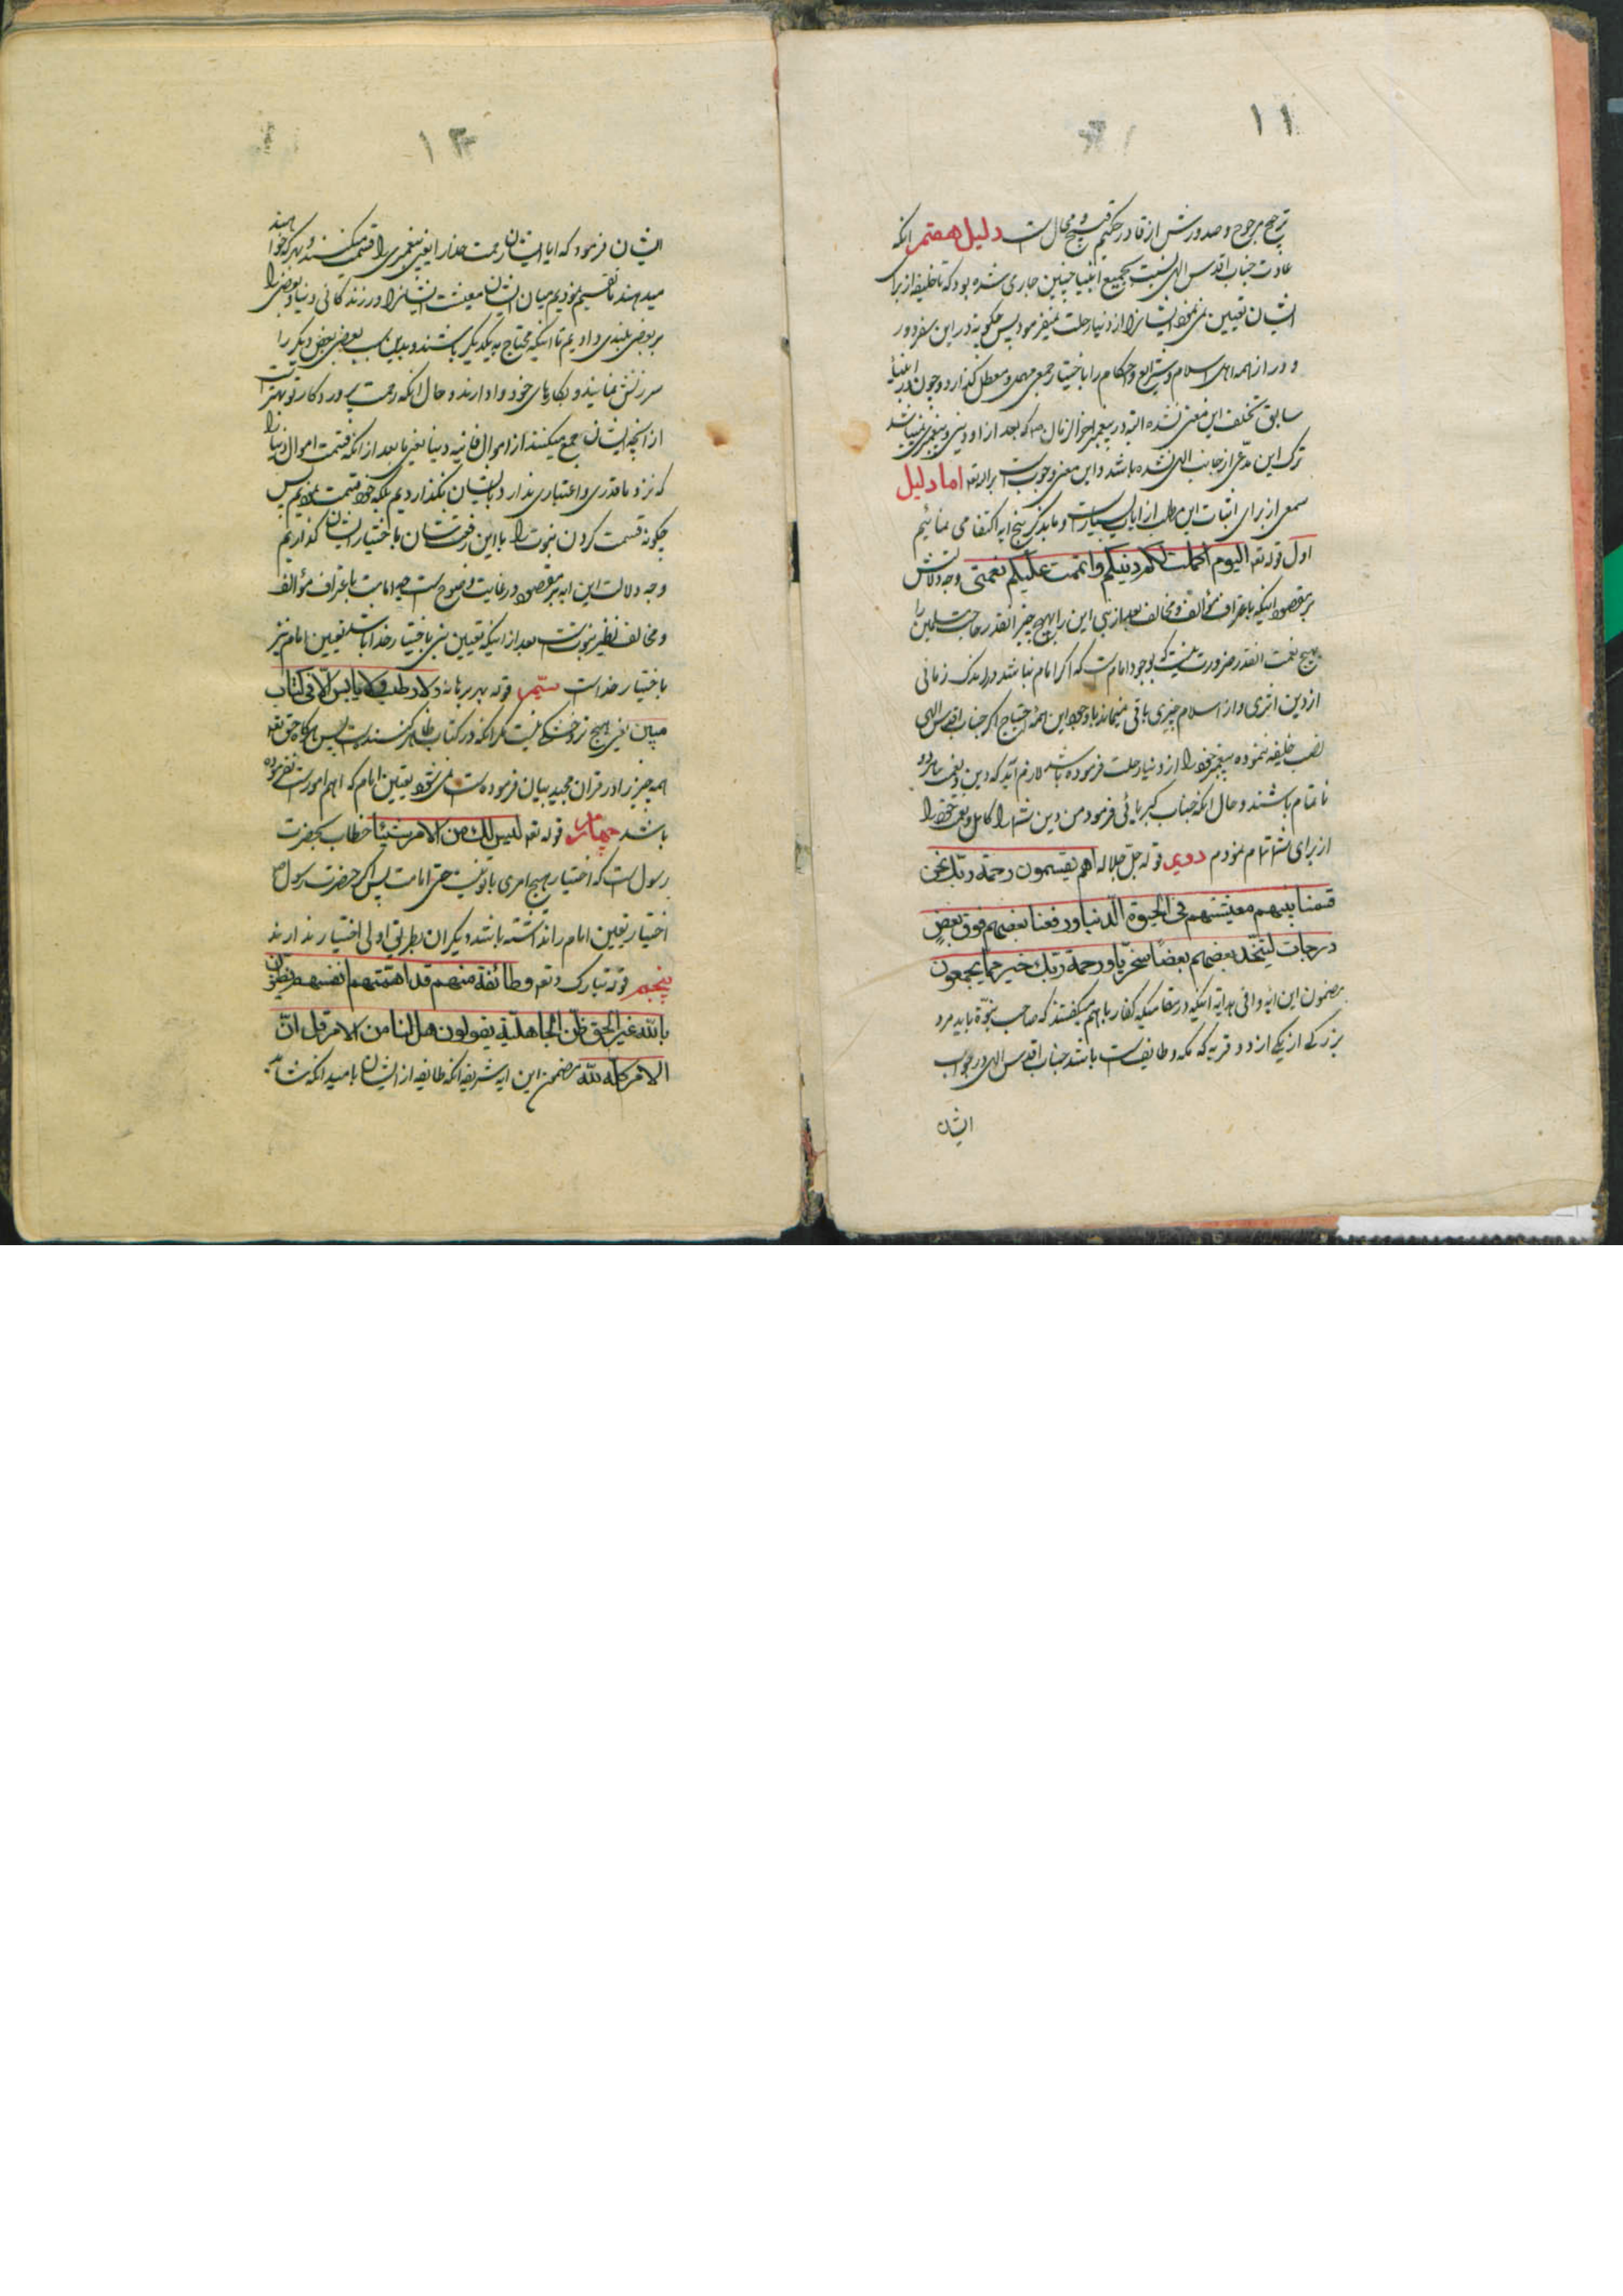 ۱۱
ترجیح مرجوح و صدورش از قادر حکیم قبیح و محال است دلیل هفتم انکه
عادت جناب اقدس الهی نسبت بجمیع انبیا چنین جاری شده بود که تا خلیفه از برای
ایشان تعیین نمی‌نمود ایشانرا از دنیا رحلت نمیفرمود پس چگونه در این سفر دور
و دراز همه اهل اسلام و شرایع و احکام را باختیار جمعی مهمل و معطل گذارد و چون در انبیاء
سابق تخلف این معنی نشده البته در پیغمبر اخرالزمان ص که بعد از او دینی و پیغمبری نمیباشد
ترک این مدعی از جانب الهی نشده باشد و این معنی وجوبست بر الله تعه اما دلیل
سمعی از برای اثبات این مطلب از ایات بسیار است و ما بذکر پنج ایه اکتفا می نمائیم
اول قوله تعه الیوم اکملت لکم دینکم و اتممت علیکم نعمتی وجه دلالتش
بر مقصود اینکه باعتراف مؤالف و مخالف بعد از نبی این را بهیچ چیز انقدر حاجت مسلمین را
بهیچ نعمت انقدر ضرورت نیست که بوجود امامست که اگر امام نباشد در اندک زمانی
از دین اثری و از اسلام چیزی باقی نمیماند باوجود این همه احتیاج اگر جناب اقدس الهی
نصب خلیفه ننموده پیغمبر خود را از دنیا رحلت فرموده باشد لازم آید که دین و نعمت هر دو
ناتمام باشند و حال انکه جناب کبریائی فرمود من دین شما را کامل و نعمت خود را
از برای شما تمام نمودم دویم قوله جل جلاله اهم یقسمون رحمة ربک نحن
قسمنا بینهم معیشتهم فی الحیوة الدنیا و رفعنا بعضهم فوق بعض
درجات لیتخذ بعضهم بعضا سخریا و رحمة ربک خیر مما یجمعون
مضمون این ایه وافی هدایه اینکه در مقامیکه کفار باهم میگفتند که صاحب نبوة باید مرد
بزرگی از یکی از دو قریه که مکه و طایفست باشد جناب اقدس الهی در جواب
ایشان
۱۲
ایشان فرمود که ایا ایشان رحمت خدا را یعنی پیغمبری را قسمت میکنند و بهر که خواهند
میدهند ما تقسیم نمودیم میان ایشان معیشت ایشانرا در زندگانی دنیا و بعضی را
بر بعضی بلندی دادیم تا اینکه محتاج به یکدیگر باشند و بدین سبب بعضی بعض دیگر را
سرزنش نمایند و بکارهای خود وادارند و حال انکه رحمت پروردگار تو بهتر است
از انچه ایشان جمع میکنند از اموال فانیه دنیا یعنی ما بعد از انکه قسمت اموال دنیا را
که نزد ما قدری و اعتباری ندارد بایشان نگذاردیم بلکه خود قسمت نمودیم پس
چگونه قسمت کردن نبوت را با این رفعت شان باختیار ایشان گذاریم
وجه دلالت این ایه بر مقصود در غایت وضوح است چه امامت باعتراف مؤالف
و مخالف نظیر نبوتست بعد از اینکه تعیین نبی باختیار خدا باشد تعیین امام نیز
باختیار خداست سیم قوله بهر برهانه و لا رطب و لا یابس الا فی کتاب
مبین یعنی هیچ تر و خشکی نیست مگر انکه در کتاب ظاهر کننده است پس هرگاه حق تعه
همه چیز را در قران مجید بیان فرموده است نمی‌شود تعیین امام که اهم امور است نفرموده
باشد چهارم قوله تعه لیس لک من الامر شیئا خطاب بحضرت
رسول است که اختیار هیچ امری با تو نیست حتی امامت پس اگر حضرت رسول ص
اختیار تعیین امام را نداشته باشند دیگران بطریق اولی اختیار ندارند
پنجم قوله تبارک و تعه و طائفة منهم قد اهمتهم انفسهم یظنون
بالله غیر الحق ظن الجاهلیة یقولون هل لنا من الامر قل ان
الامر کله لله مضمون این ایه شریفه انکه طایفه از ایشان بامید انکه شاید